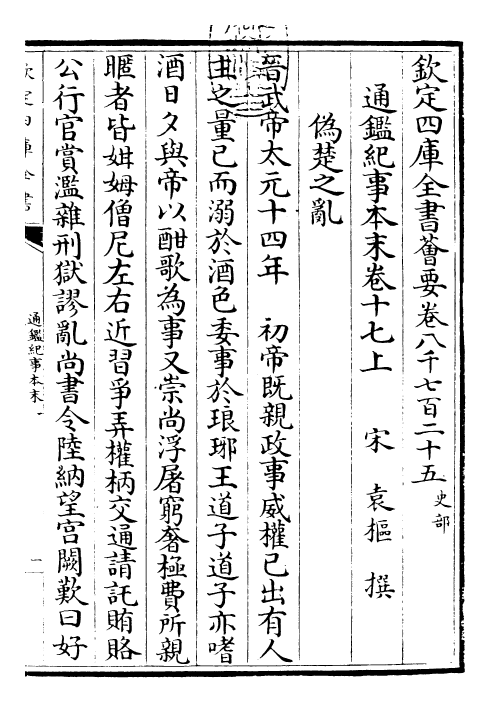 欽定四庫全書薈要卷八千七百二十五 史部
通鑑紀事本末卷十七上 宋 袁樞 撰
偽楚之亂
晉武帝太元十四年 初帝既親政事威權已出有人
主之量已而溺於酒色委事於琅琊王道子道子亦嗜
酒日夕與帝以酣歌為事又崇尚浮屠窮奢極費所親
暱者皆姏姆僧尼左右近習爭弄權柄交通請託賄賂
公行官賞濫雜刑獄謬亂尚書令陸納望宮闕歎曰好
欽定四庫全書
通鑑紀事本末